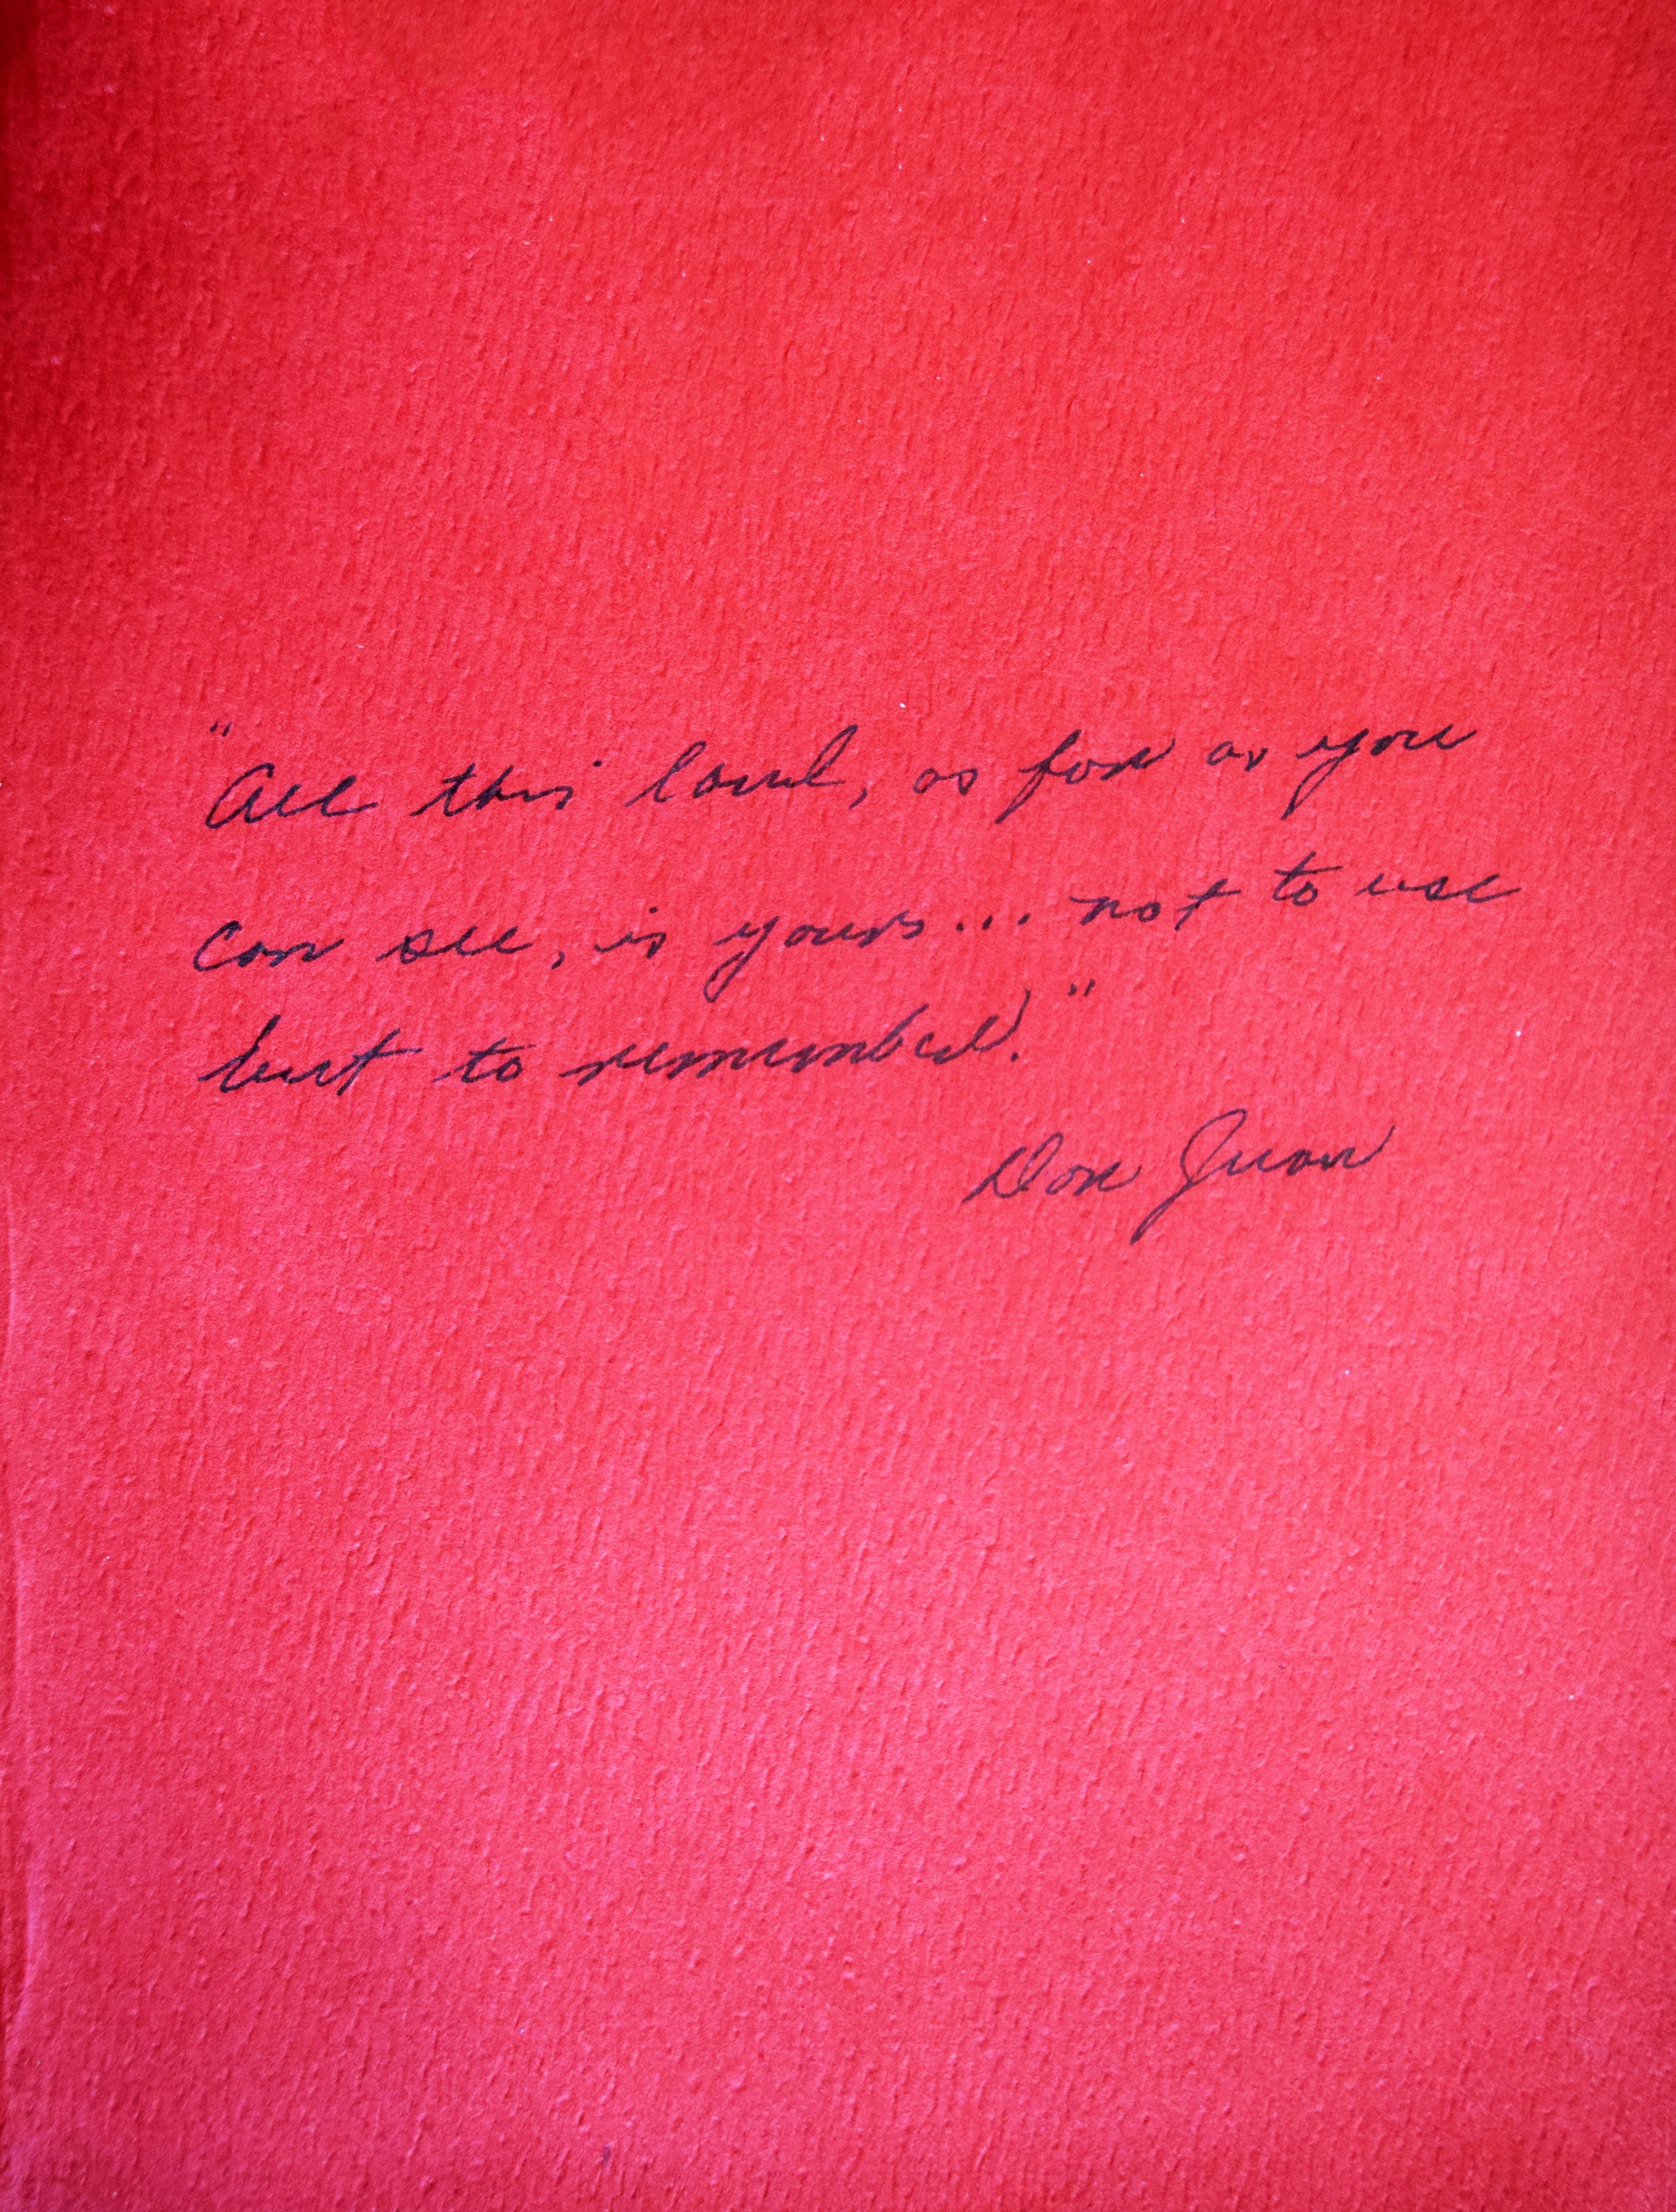 "All this land, as far as you
can see, is yours... not to use
but to remember."
Don Juan